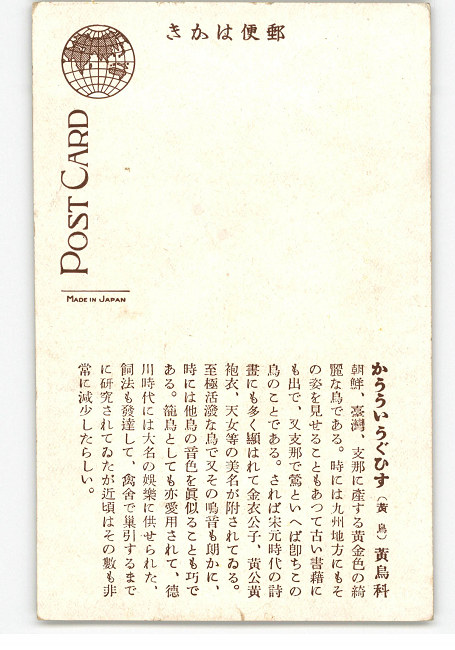 きかは便郵
POST CARD
MADE IN JAPAN
かうういうぐひす（黃鳥）黃鳥科
朝鮮、臺灣、支那に產する黃金色の綺
麗な鳥である。時には九州地方にもそ
の姿を見せることもあつて古い書藉に
も出で、又支那で鶯といへば卽ちこの
鳥のことである。されば宋元時代の詩
畫にも多く顯はれて金衣公子、黃公黃
袍衣、天女等の美名が附されてゐる。
至極活潑な鳥で又その鳴音も朗かに、
時には他鳥の音色を眞似ることも巧で
ある。籠鳥としても亦愛用されて、德
川時代には大名の娛樂に供せられた、
飼法も發達して、禽舍で巢引するまで
に硏究されてゐたが近頃はその數も非
常に減少したらしい。